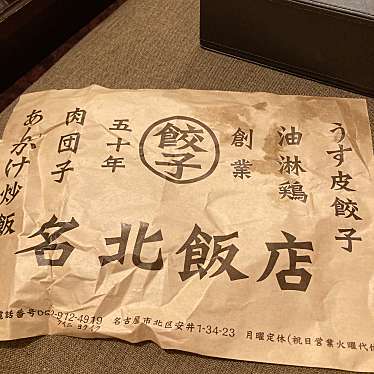 うす皮餃子
油淋鶏
創業
餃子
五十年
肉団子
あんかけ炒飯
名北飯店
電話番号052-912-4919 名古屋市北区安井1-34-23 月曜定休(祝日営業火曜代休
クイニ ヨクイク